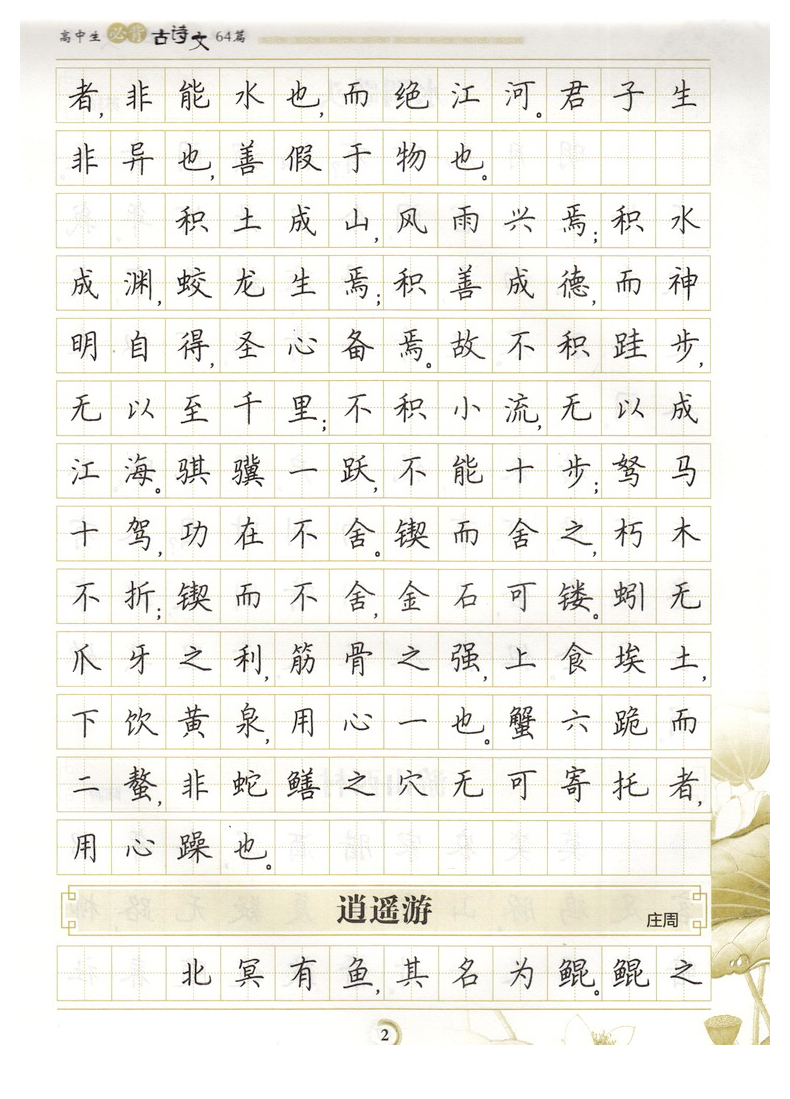 高中生必背古诗文64篇
者,非能水也,而绝江河。君子生
非异也,善假于物也。
积土成山,风雨兴焉;积水
成渊,蛟龙生焉;积善成德,而神
明自得,圣心备焉。故不积跬步,
无以至千里;不积小流,无以成
江海。骐骥一跃,不能十步;驽马
十驾,功在不舍。锲而舍之,朽木
不折;锲而不舍,金石可镂。蚓无
爪牙之利,筋骨之强,上食埃土,
下饮黄泉,用心一也。蟹六跪而
二螯,非蛇鳝之穴无可寄托者,
用心躁也。
逍遥游
庄周
北冥有鱼,其名为鲲。鲲之
2